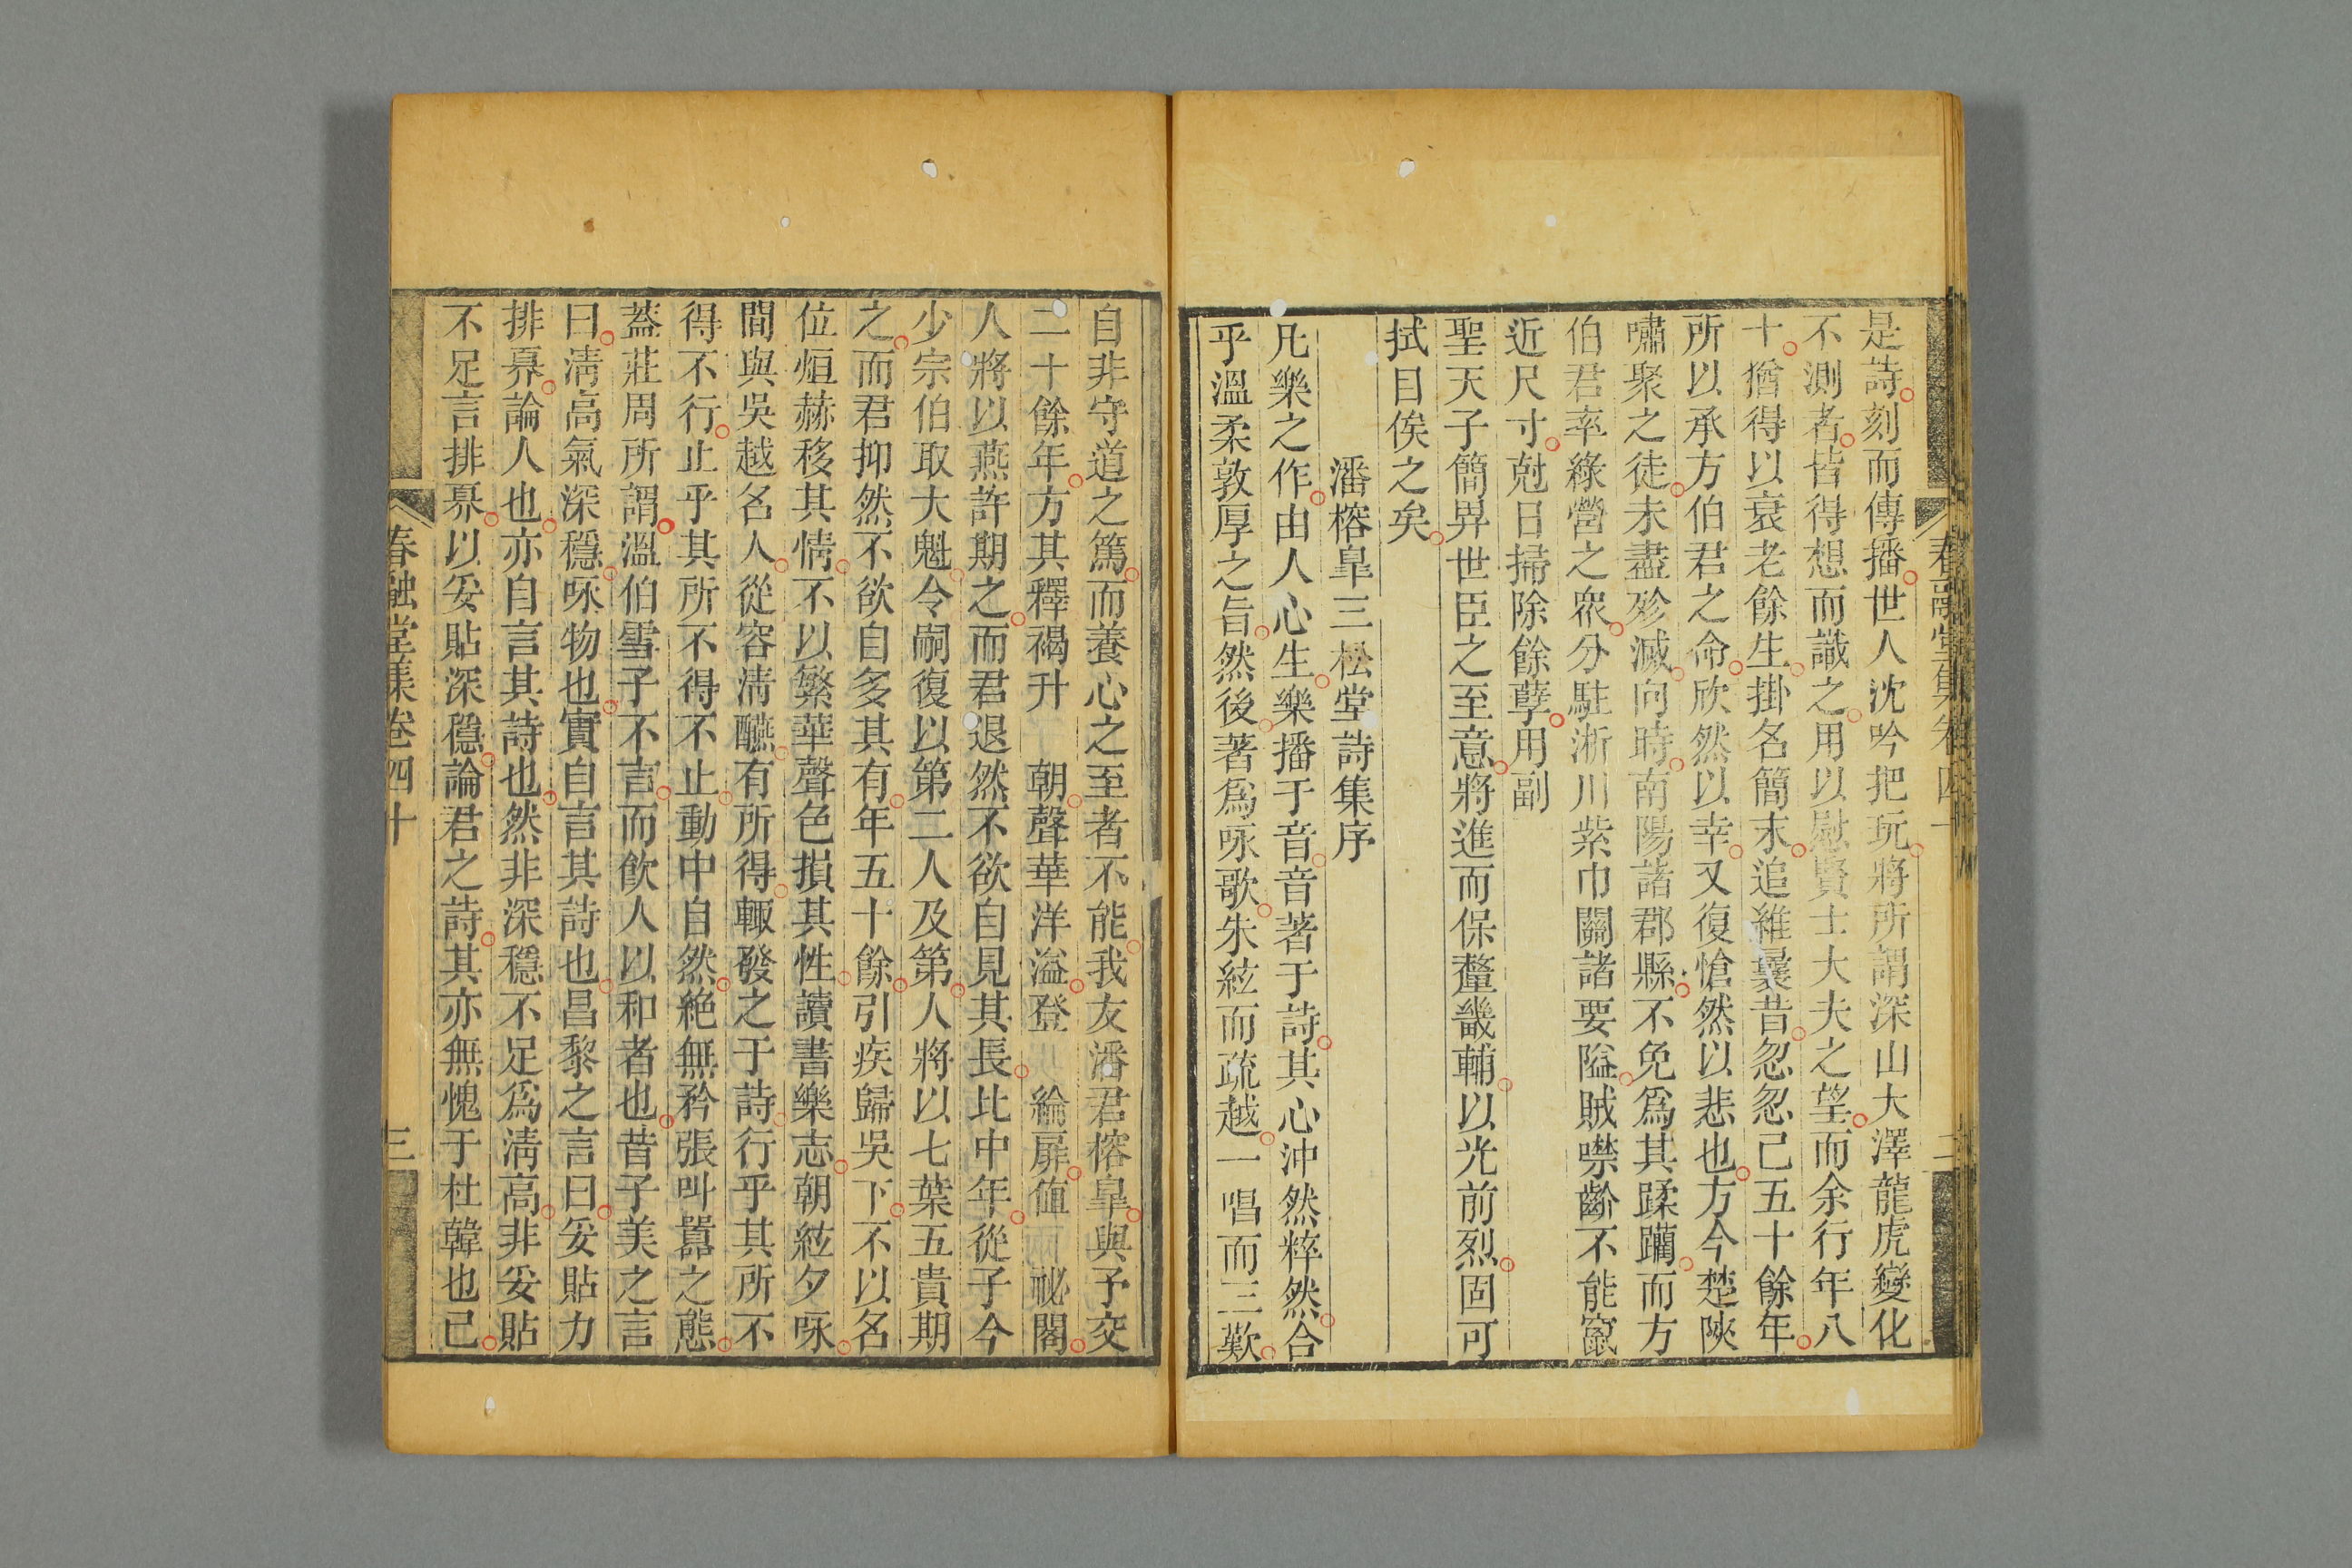 是詩刻而傳播世人沈吟把玩將所謂深山大澤龍虎變化
不測者皆得想而識之用以慰賢士大夫之望而余行年八
十猶得以衰老餘生掛名簡末追維曩昔忽忽已五十餘年
所以承方伯君之命欣然以幸又復愴然以悲也方今楚陝
嘯聚之徒未盡殄滅向時南陽諸郡縣不免爲其蹂躪而方
伯君率綠營之衆分駐淅川紫巾關諸要隘賊噤齡不能竄
近尺寸尅日掃除餘孽用副
聖天子簡畀世臣之至意將進而保釐畿輔以光前烈固可
拭目俟之矣
潘榕皐三松堂詩集序
凡樂之作由人心生樂播于音音著于詩其心沖然粹然合
乎溫柔敦厚之旨然後著爲咏歌朱絃而疏越一唱而三歎
自非守道之篤而養心之至者不能我友潘君榕皐與予交
二十餘年方其釋褐升 朝聲華洋溢登 綸扉值 祕閣
人將以燕許期之而君退然不欲自見其長比中年從子今
少宗伯取大魁令嗣復以第二人及第人將以七葉五貴期
之而君抑然不欲自多其有年五十餘引疾歸吳下不以名
位烜赫移其情不以繁華聲色損其性讀書樂志朝絃夕咏
間與吳越名人從容淸醼有所得輙發之于詩行乎其所不
得不行止乎其所不得不止動中自然絶無矜張叫囂之態
蓋莊周所謂溫伯雪子不言而飮人以和者也昔子美之言
曰淸高氣深穩咏物也實自言其詩也昌黎之言曰妥貼力
排奡論人也亦自言其詩也然非深穩不足爲淸高非妥貼
不足言排奡以妥貼深穩論君之詩其亦無愧于杜韓也已
春融堂集卷四十
三